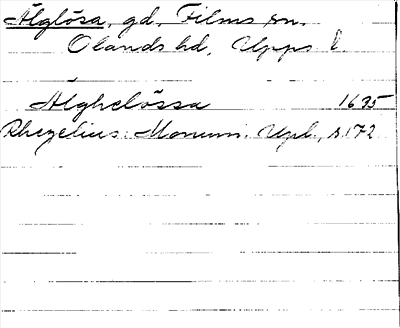 Älglösa, gd, Films sn.
Olands hd, Upps l.
Älghelössa 1635
Rhezelius: Monum. Upl., s. 172